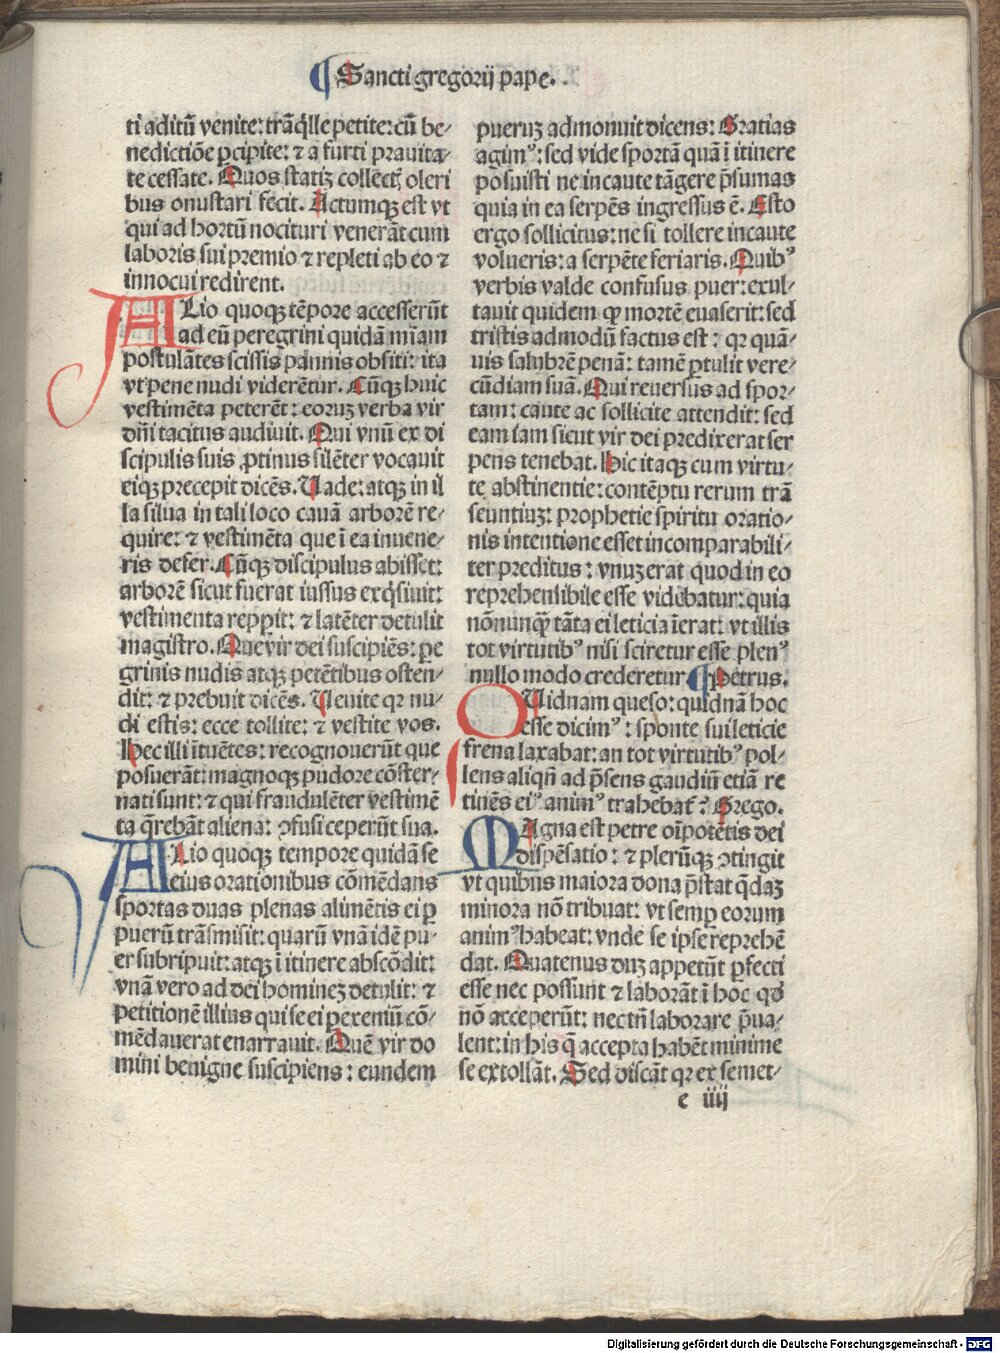 ¶ Sancti gregorij pape.
ti aditū venite: trāq̈lle petite: cū be⸗
nedictiōe ꝑcipite: ⁊ a furti prauita⸗
te cessate. Quos statiꝫ collectꝭ oleri
bus onustari fecit. Actumqꝫ est vt
qui ad hortū nocituri venerāt cum
laboris sui premio ⁊ repleti ab eo ⁊
innocui redirent.
ALio quoqꝫ tēpore accesserūt
ad eū peregrini quidā mi̅am
postulātes scissis pannis obsiti: ita
vt pene nudi viderētur. Cūqꝫ huic
vestimēta peterēt: eoruꝫ verba vir
dn̄i tacitus audiuit. Qui vnū ex di
scipulis suis ꝓtinus silēter vocauit
eiqꝫ precepit dicēs. Uade: atqꝫ in il
la silua in tali loco cauā arborē re⸗
quire: ⁊ vestimēta que ī ea inuene⸗
ris defer. Cūqꝫ discipulus abisset:
arborē sicut fuerat iussus exq̈siuit:
vestimenta repꝑit: ⁊ latēter detulit
magistro. Que vir dei suscipiēs: pe
grinis nudis atqꝫ petētibus osten⸗
dit: ⁊ prebuit dicēs. Uenite qꝛ nu⸗
di estis: ecce tollite: ⁊ vestite vos.
Hec illi ītuētes: recognouerūt que
posuerāt: magnoqꝫ pudore cōster⸗
nati sunt: ⁊ qui fraudulēter vestimē
ta q̄rebāt aliena: ꝯfusi ceperūt sua.
ALio quoqꝫ tempore quidā se
eius orationibus cōmēdans
sportas duas plenas alimētis ei ꝑ
puerū trāsmisit: quarū vnā idē pu⸗
er subripuit: atqꝫ ī itinere abscōdit:
vnā vero ad dei hominēꝫ detulit: ⁊
petitionē illius qui se ei ꝑ exeniū cō⸗
mēdauerat enarrauit. Quē vir do
mini benigne suscipiens: eundem
pueruꝫ admonuit dicens: Gratias
agimꝰ: sed vide sportā quā ī itinere
posuisti ne incaute tāgere p̄sumas
quia in ea serpēs ingressus ē. Esto
ergo sollicitus: ne si tollere incaute
volueris: a serpēte feriaris. Quibꝰ
verbis valde confusus puer: exul⸗
tauit quidem ꝙ mortē euaserit: sed
tristis admodū factus est: qꝛ quā⸗
uis salubrē penā: tamē ꝑtulit vere⸗
cūdiam suā. Qui reuersus ad spor⸗
tam: caute ac sollicite attendit: sed
eam iam sicut vir dei predixerat ser
pens tenebat. Hic itaqꝫ cum virtu⸗
te abstinentie: contēptu rerum trā
seuntiuꝫ: prophetie spiritu oratio⸗
nis intentione esset incomparabili⸗
ter preditus: vnuꝫ erat quod in eo
reprehensibile esse videbatur: quia
nōnunqꝫ̄ tāta ei leticia īerat: vt illis
tot virtutibꝰ nisi sciretur esse plenꝰ
nullo modo crederetur. ¶ Petrus.
QUidnam queso: quidnā hoc
esse dicimꝰ: sponte sui leticie
frena laxabat: an tot virtutibꝰ pol⸗
lens aliqn̄ ad p̄sens gaudiū etiā re
tinēs eiꝰ animꝰ trahebat̄? Grego.
MAgna est petre oi̅potētis dei
dispēsatio: ⁊ plerūqꝫ ꝯtingit
vt quibus maiora dona p̄stat q̄daꝫ
minora nō tribuat: vt semꝑ eorum
animꝰ habeat: vnde se ipse reprehē
dat. Quatenus duꝫ appetūt ꝑfecti
esse nec possunt ⁊ laborāt ī hoc qđ
nō acceperūt: nec tn̄ laborare p̄ua⸗
lent: in his q̄ accepta habēt minime
se extollāt. Sed discāt qꝛ ex semet⸗
e iiij
Digitalisierung gefördert durch die Deutsche Forschungsgemeinschaft - DFG